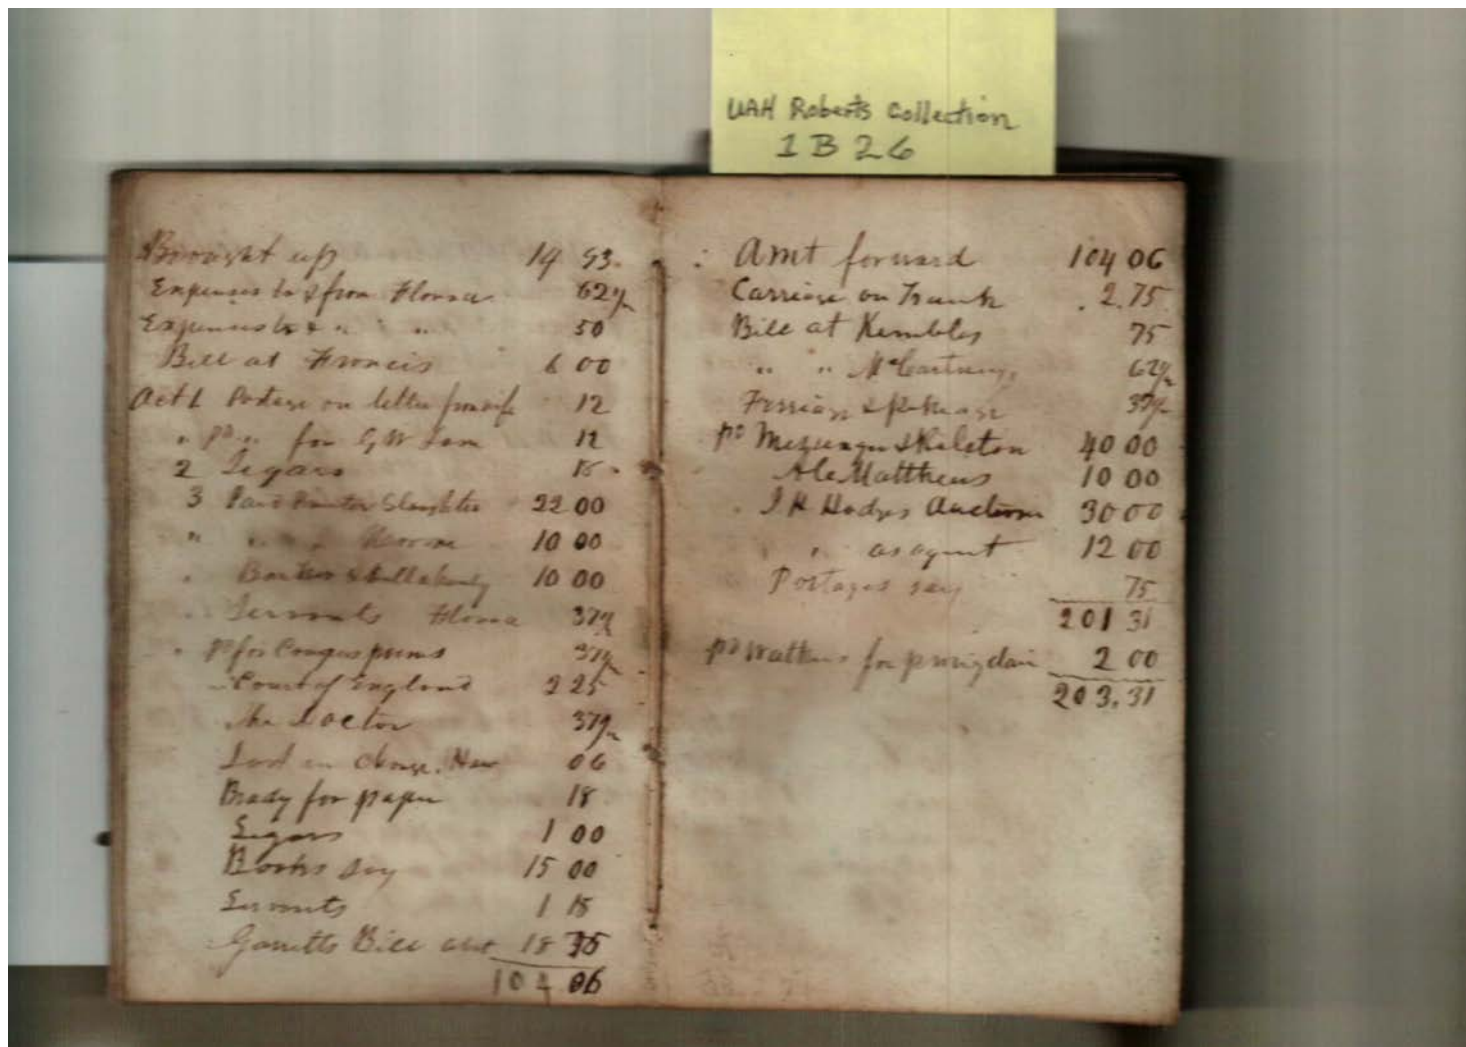 UAH Roberts Collection
1B26
Brought up 14 93
Expenses to & from Florna 62½
Expenses to & " " " 50
Bill at Francis 6 00
Oct 1 Postage on letter from wife 12
" pd " for GW Lane 12
2 Segars 18
3 Paid Slaughter 22 00
" " " 10 00
" 10 00
" Servants 37½
" pd for Congress 37½
" Court of England 2 25
The Doctor 37½
Lost in change. 06
Brady for paper 18
Segars 1 00
Books say 15 00
Servants 1 18
Garretts Bill 18 75
104 06
Amt forward 104 06
Carriage on Trunk 2.75
Bill at Kembles 75
" " McCartneys 62½
Ferriage & 37½
pd Messenger Skeleton 40 00
Matthews 10 00
J H Hodges 30 00
" " as agent 12 00
Postages say 75
201 31
pd Watkins for 2 00
203.31